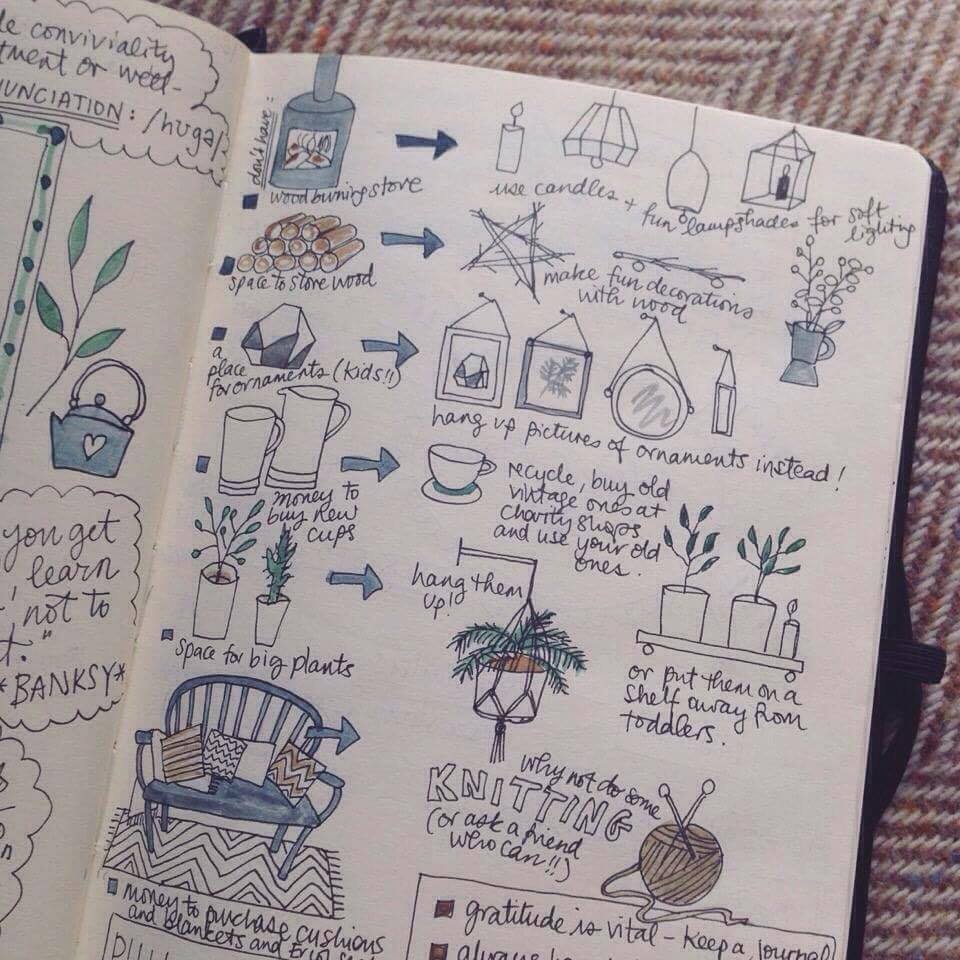 conviviality
or
UNCIATION: /huga/
you get
learn
not to
t."
*BANKSY*
don't have:
wood burning stove
use candles + fun lampshades for soft
lighting
space to store wood
make fun decorations
with wood
a
place
for ornaments (kids!!)
hang up pictures of ornaments instead!
money to
buy new
cups
recycle, buy old
vintage ones at
charity shops
and use your old
ones.
space for big plants
hang them
up!
or put them on a
shelf away from
toddlers.
money to purchase cushions
and blankets and
why not do some
KNITTING
(or ask a friend
who can!!)
gratitude is vital - keep a journal
always